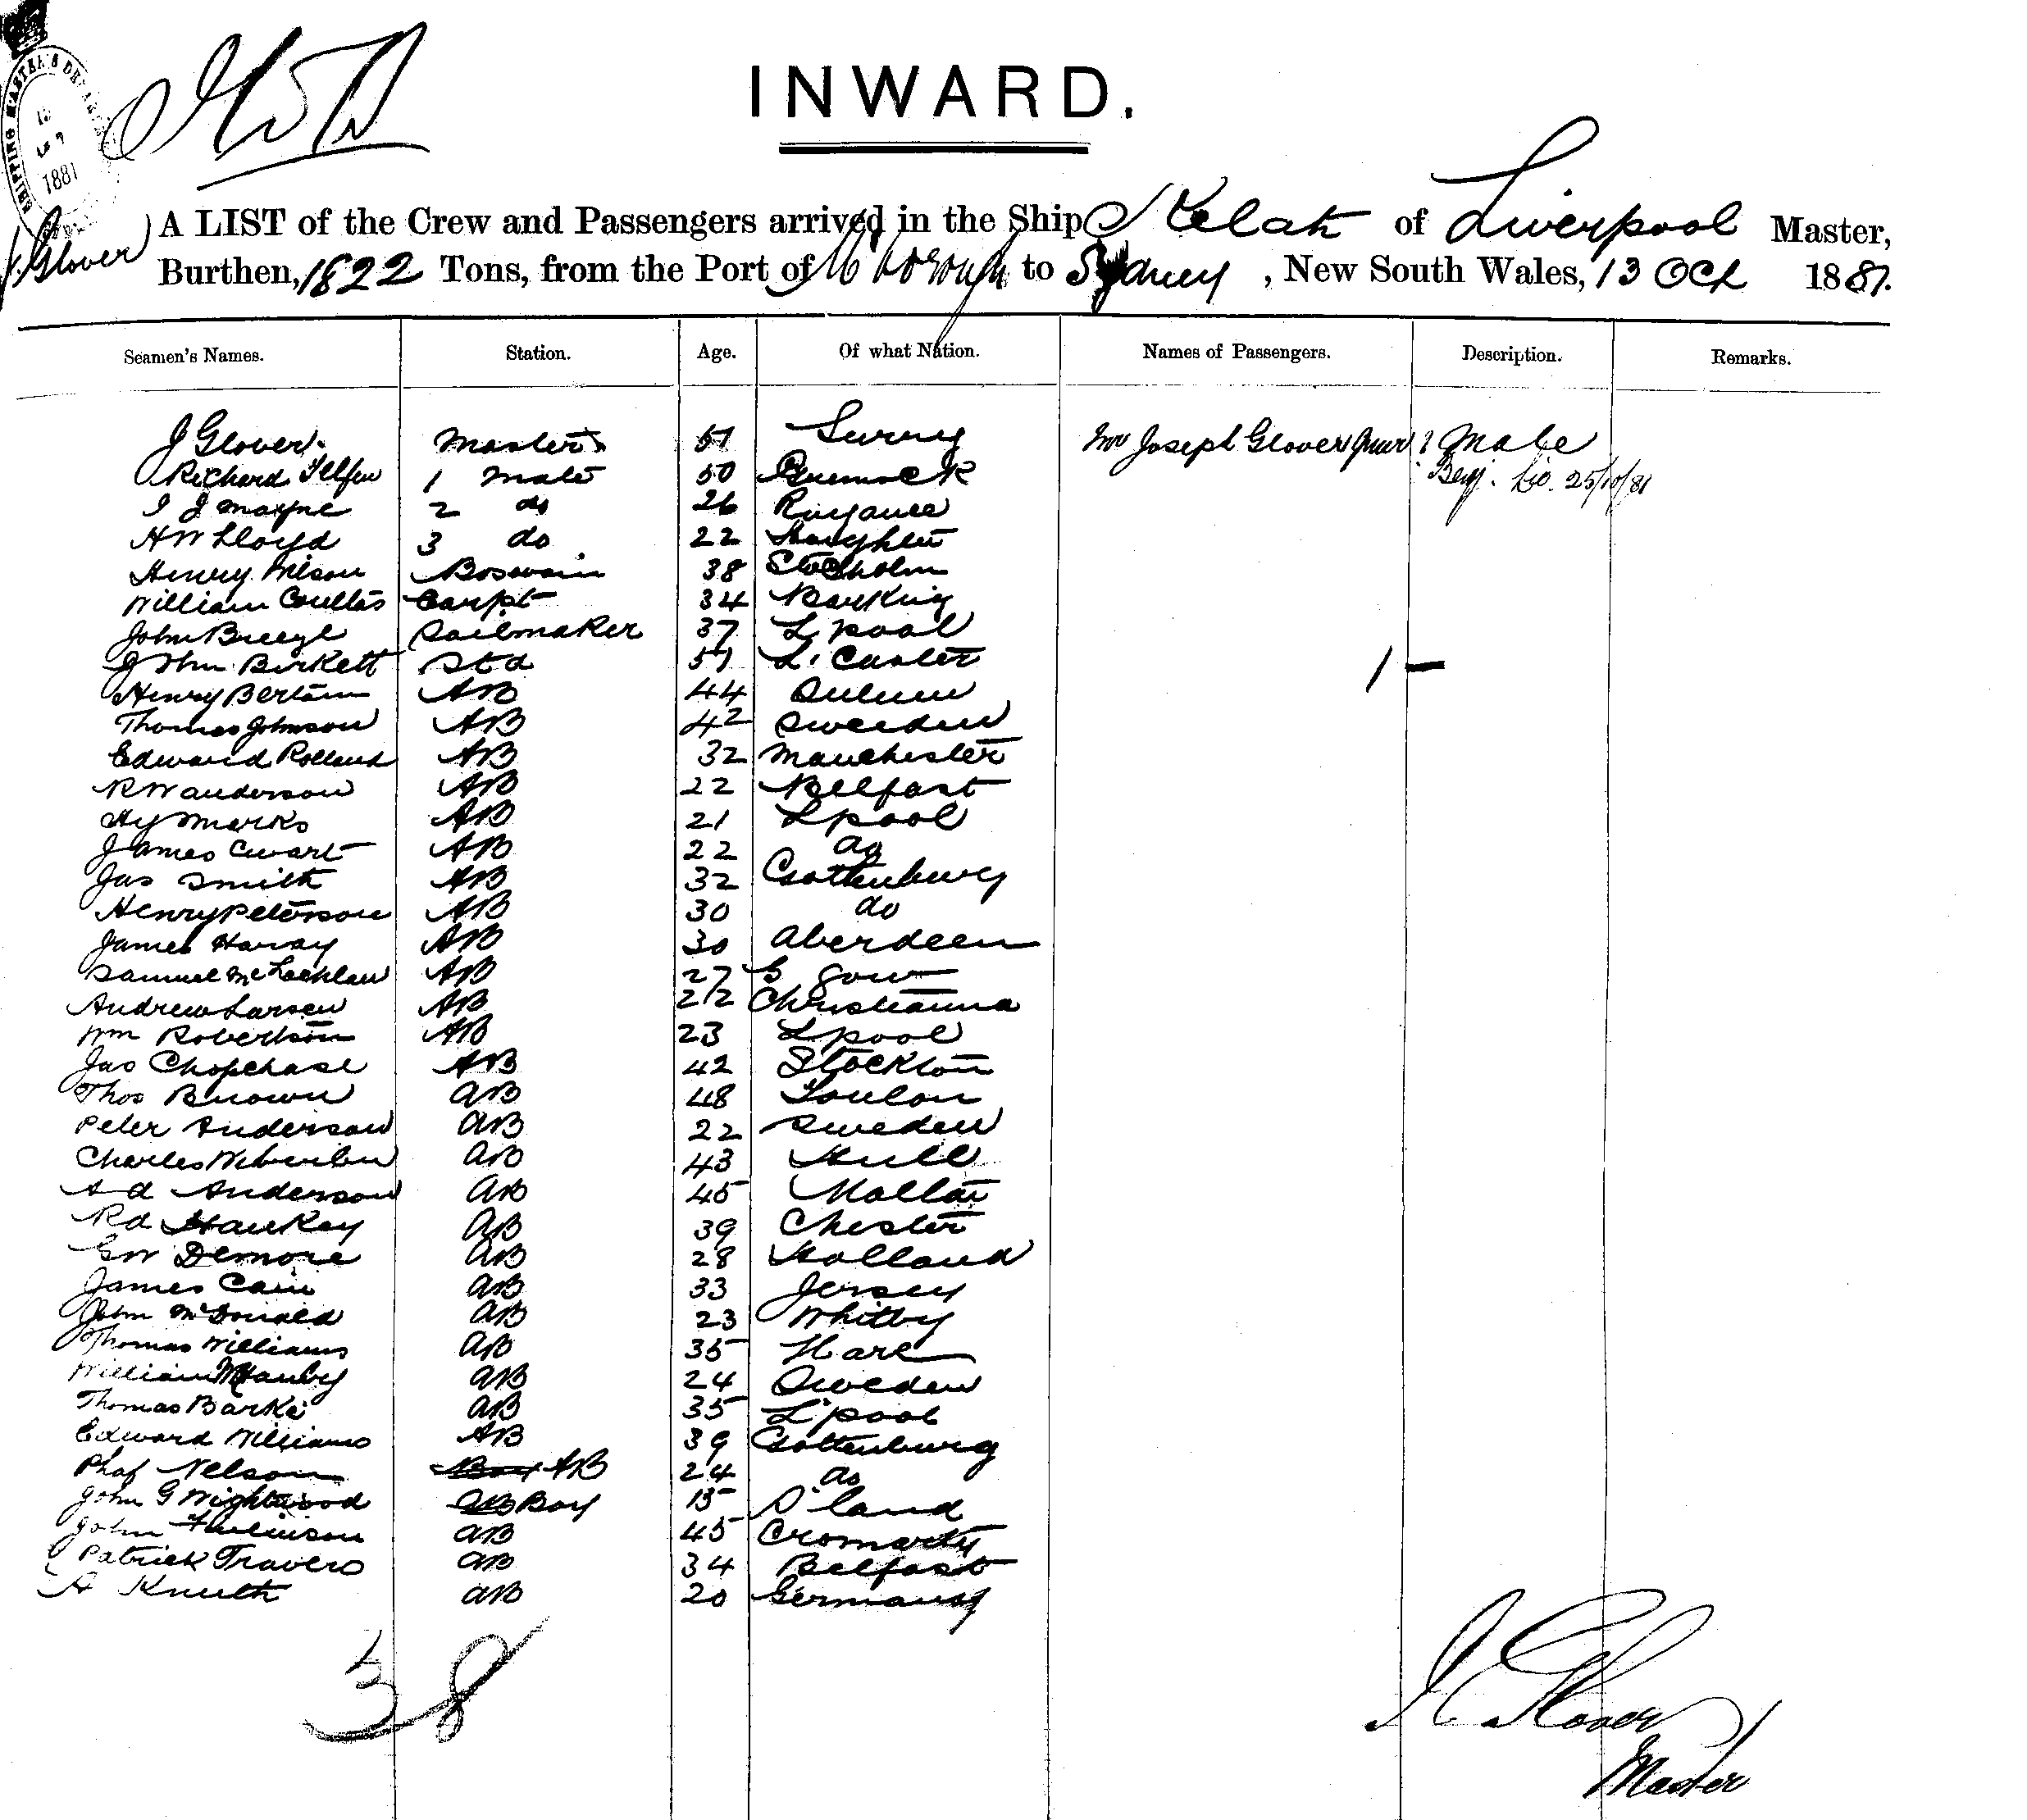 SHIPPING MASTER'S
1881
INWARD.
J. Glover
A LIST of the Crew and Passengers arrived in the Ship Kelat of Liverpool Master,
Burthen, 1822 Tons, from the Port of M'borough to Sydney, New South Wales, 13 Oct 1881.
Seamen's Names. Station. Age. Of what Nation. Names of Passengers. Description. Remarks.
J Glover Master Surrey Mr Joseph Glover 1 Male
Richard Telfer 1 Mate 50 25/10/81
J J Mayne 2 do 26
H W Lloyd 3 do 22
Henry Nilson Boswain 38 Stockholm
William Coultas Carpt 34 Barking
John Sailmaker 37 L'pool
John Birkett Std
Henry AB 44
Thomas Johnson AB 42 Sweeden
Edward AB 32 Manchester
R W Anderson AB 22 Belfast
Hy Marks AB 21 Lpool
James Ewart AB 22 do
Jas Smith AB 32 Gottenburg
Henry Peterson AB 30 do
James AB 30 Aberdeen
Samuel McLachlan AB 27 G gow
Andrew Larsen AB 22 Christianna
Wm Robertson AB 23 Lpool
Jas Chopchase AB 42 Stockton
Thos Brown AB 48
Peter Anderson AB 22 Sweden
Charles AB 43 Hull
Anderson AB 45
Rd AB 39 Chester
Demore AB 28 Holland
James Cain AB 33 Jersey
John McDonald AB 23 Whitby
Thomas Williams AB 35
William AB 24 Sweden
Thomas AB 35 L'pool
Edward Williams AB 39 Gottenburg
Nelson Boy AB 24 do
John G Wightwood AB Boy 15 S'land
John AB 45 Cromarty
Patrick Travers AB 34 Belfast
A Knuth AB 20 Germany
1 —
38
J Glover
Master